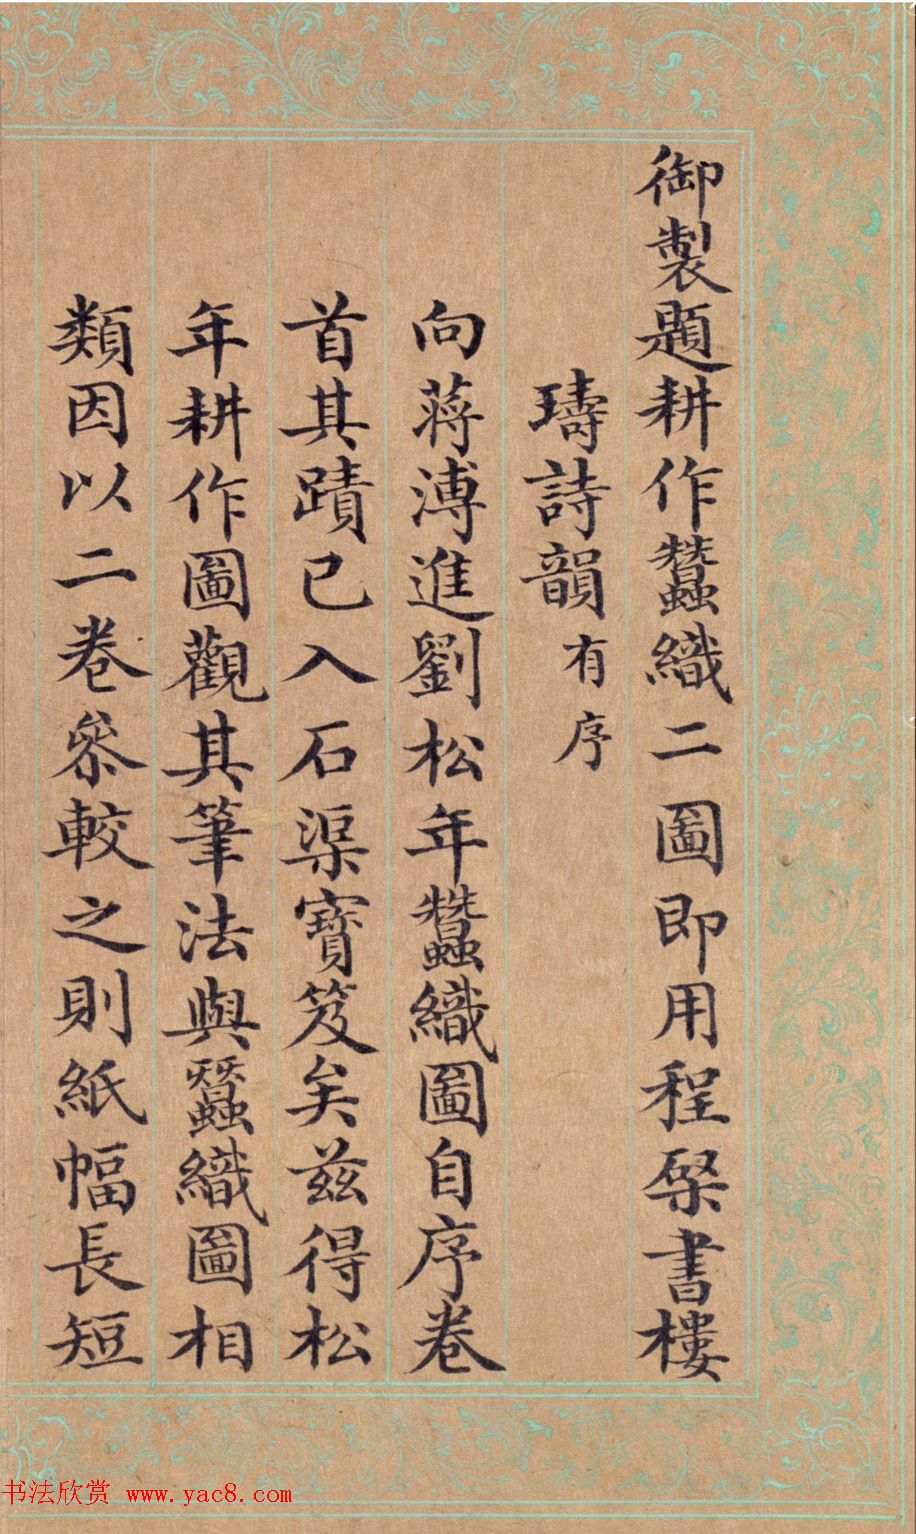 御製題耕作蠶織二圖即用程棨書樓
璹詩韻有序
向蔣溥進劉松年蠶織圖自序卷
首其蹟已入石渠寶笈矣茲得松
年耕作圖觀其筆法與蠶織圖相
類因以二卷叅較之則紙幅長短
书法欣赏 www.yac8.com